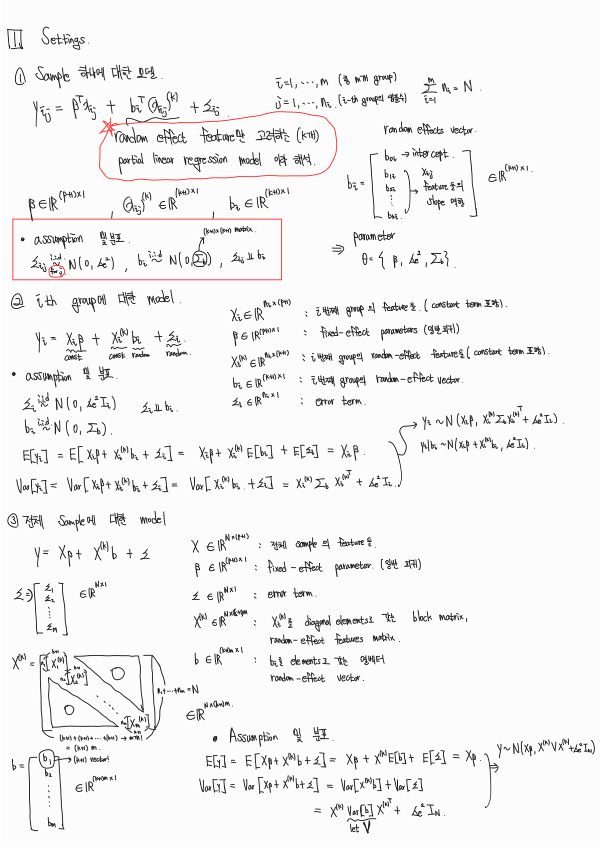 1. Settings.
① Sample 하나에 대한 모델.
y_ij = β^T x_ij + b_i^T (x_ij)^(k) + ε_ij
i=1, ..., m (총 m개 group)
j=1, ..., n_i (i-th group의 샘플수)
Σ_{i=1}^{m} n_i = N
random effect feature만 고려하는 (k개)
partial linear regression model 이라 해석.
random effects vector.
b_i = [b_0i → intercept. b_1i b_2i ⋮ b_ki → x_ij feature들의 slope 역할] ∈ℝ^{(k+1)×1}
β∈ℝ^{(p+1)×1} , (x_ij)^(k) ∈ℝ^{(k+1)×1} b_i ∈ℝ^{(k+1)×1}
• assumption 및 분포
(k+1)×(k+1) matrix.
ε_ij i.i.d ~ N(0, σ_e²) , b_i i.i.d ~ N(0, Σ_b) , ε_ij ⫫ b_i
for j
⇒ parameter
θ = { β, σ_e², Σ_b}
② i th group에 대한 model.
y_i = X_i β + X_i^(k) b_i + ε_i
const. const. random random.
X_i ∈ℝ^{n_i×(p+1)} : i번째 group의 feature들. (constant term 포함)
β ∈ℝ^{(p+1)×1} : fixed-effect parameters (일반 회귀)
X_i^(k) ∈ℝ^{n_i×(k+1)} : i번째 group의 random-effect feature들 (constant term 포함).
b_i ∈ℝ^{(k+1)×1} : i번째 group의 random-effect vector.
ε_i ∈ℝ^{n_i×1} : error term.
• assumption 및 분포.
ε_i i.i.d ~ N(0, σ_e² I_i) ε_i ⫫ b_i
b_i i.i.d ~ N(0, Σ_b)
E[y_i] = E[X_iβ + X_i^(k) b_i + ε_i] = X_iβ + X_i^(k) E[b_i] + E[ε_i] = X_iβ.
Var[y_i] = Var[X_iβ + X_i^(k) b_i + ε_i] = Var[X_i^(k) b_i + ε_i] = X_i^(k) Σ_b X_i^(k)T + σ_e² I_i.
y_i ~ N(X_iβ, X_i^(k) Σ_b X_i^(k)T + σ_e² I_i)
y_i|b_i ~ N(X_iβ + X_i^(k) b_i, σ_e² I_i)
③ 전체 Sample에 대한 model
y = Xβ + X^(k) b + ε
X ∈ℝ^{N×(p+1)} : 전체 sample의 feature들.
β ∈ℝ^{(p+1)×1} : fixed-effect parameter. (일반 회귀)
ε ∈ℝ^{N×1} : error term.
X^(k) ∈ℝ^{N×(k+1)m} : X_i^(k)를 diagonal elements로 갖는 block matrix,
random-effect features matrix.
b ∈ℝ^{(k+1)m×1} : b_i를 elements로 갖는 열벡터
random-effect vector.
ε ⇒ [ε_1 ε_2 ⋮ ε_m] ∈ℝ^{N×1}
X^(k) = [n_1[X_1^(k)] n_2[X_2^(k)] ⋱ n_m[X_m^(k)] 0 0] n_1+...+n_m = N
∈ℝ^{N×(k+1)m}.
(k+1)+(k+1)+...+(k+1) → m개!
= (k+1) m.
b = [b_1 b_2 ⋮ b_m] → (k+1) vector! ∈ℝ^{(k+1)m×1}
• Assumption 및 분포.
E[y] = E[Xβ + X^(k)b + ε] = Xβ + X^(k)E[b] + E[ε] = Xβ.
Var[y] = Var[Xβ + X^(k)b + ε] = Var[X^(k)b] + Var[ε]
= X^(k) Var[b] X^(k)T + σ_e² I_N.
let V
⇒ y ~ N(Xβ, X^(k)VX^(k) + σ_e² I_N)